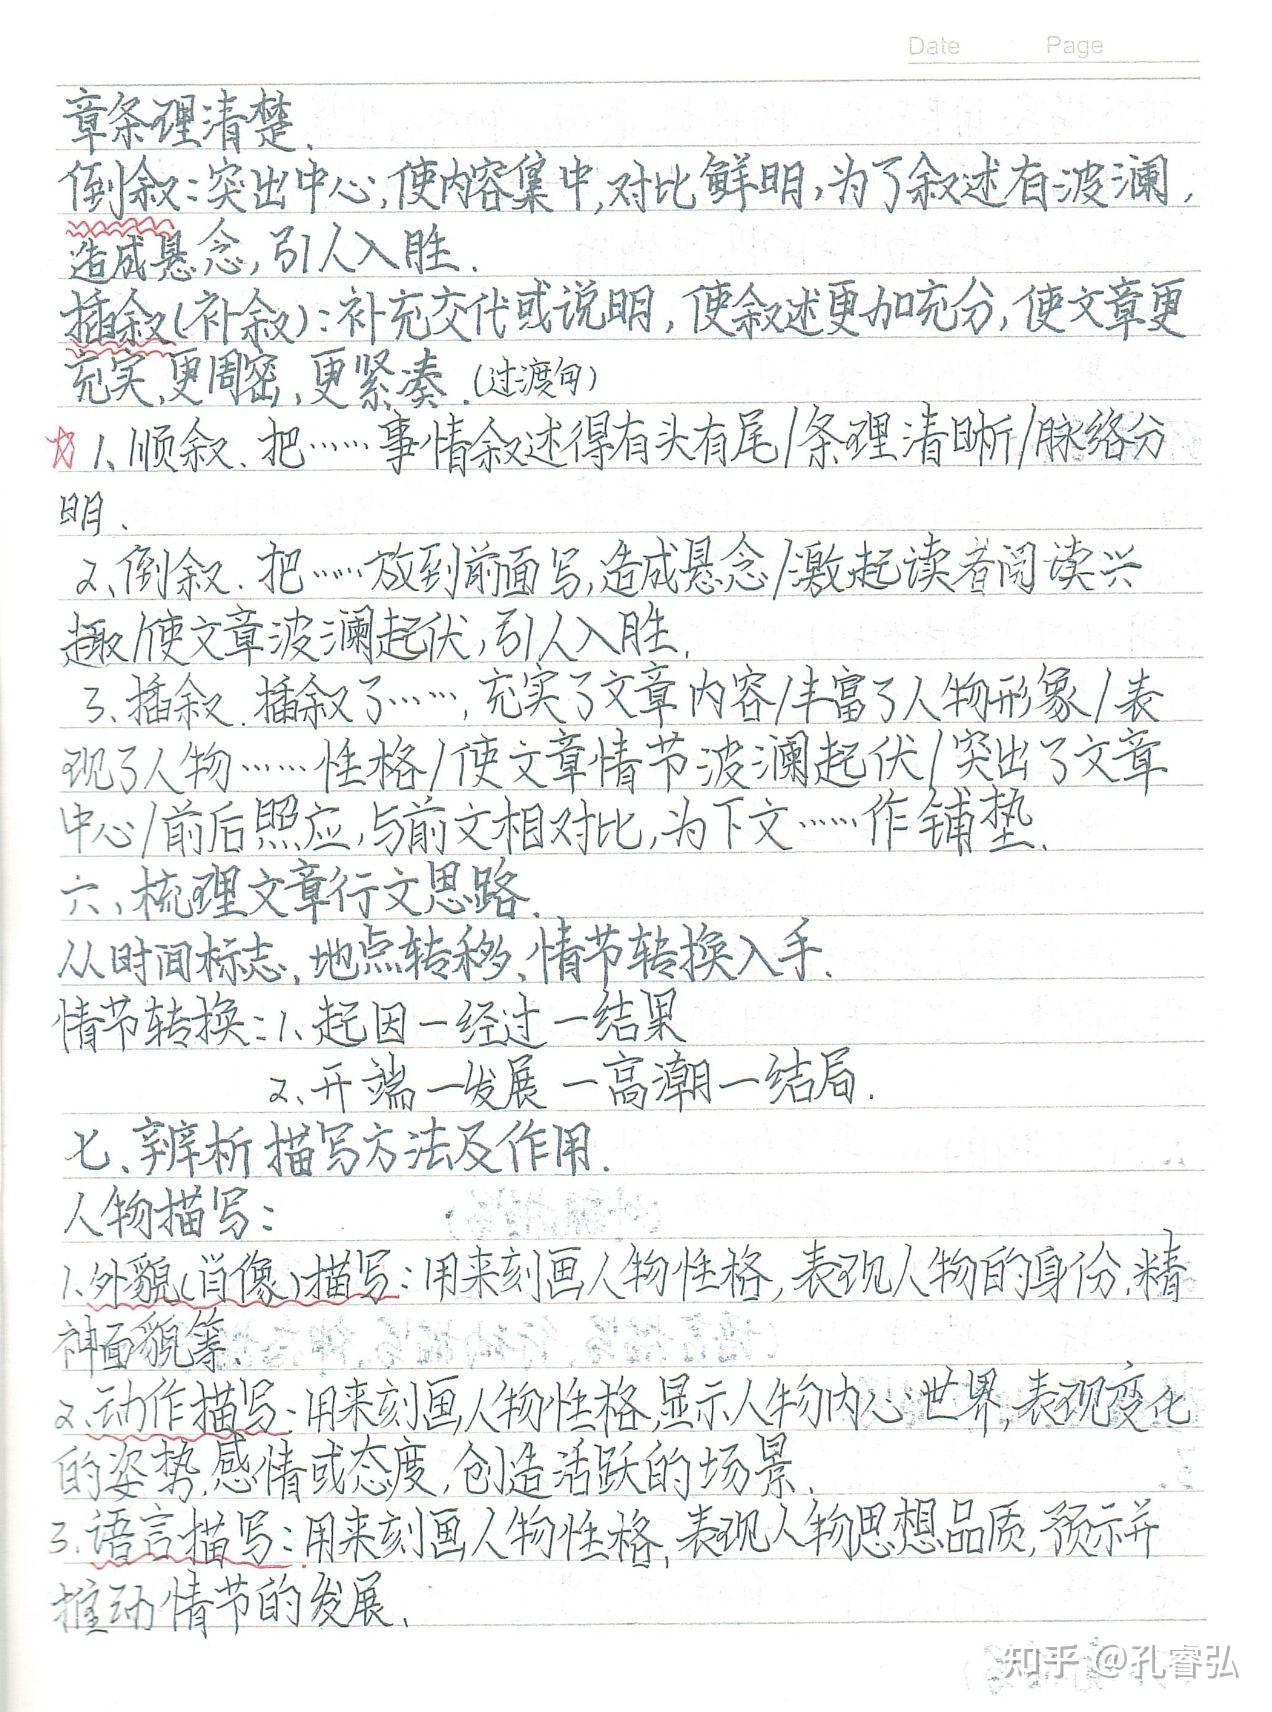 Date Page
章条理清楚.
倒叙:突出中心,使内容集中,对比鲜明,为了叙述有波澜,
造成悬念,引人入胜.
插叙(补叙):补充交代或说明,使叙述更加充分,使文章更
充实,更周密,更紧凑.(过渡句)
☆1、顺叙.把……事情叙述得有头有尾/条理清晰/脉络分
明.
2、倒叙.把……放到前面写,造成悬念/激起读者阅读兴
趣/使文章波澜起伏,引人入胜.
3、插叙.插叙了……,充实了文章内容/丰富了人物形象/表
现了人物……性格/使文章情节波澜起伏/突出了文章
中心/前后照应,与前文相对比,为下文……作铺垫.
六、梳理文章行文思路.
从时间标志、地点转移、情节转换入手.
情节转换:1、起因—经过—结果
2、开端—发展—高潮—结局.
七、辨析描写方法及作用.
人物描写:
1.外貌(肖像)描写:用来刻画人物性格,表现人物的身份、精
神面貌等.
2、动作描写:用来刻画人物性格,显示人物内心世界,表现变化
的姿势,感情或态度,创造活跃的场景.
3.语言描写:用来刻画人物性格,表现人物思想品质,预示并
推动情节的发展.
知乎 @孔睿弘